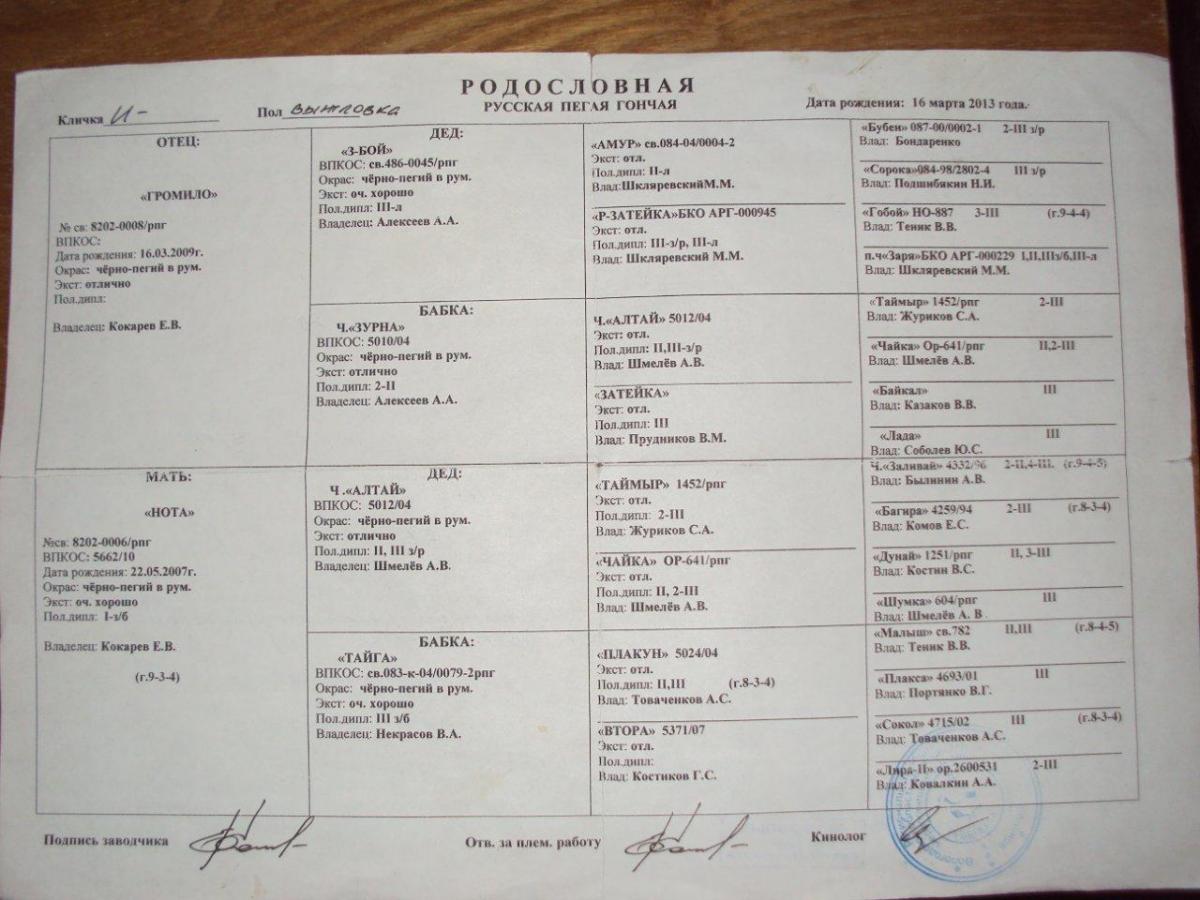 РОДОСЛОВНАЯ
РУССКАЯ ПЕГАЯ ГОНЧАЯ
Кличка И-
Пол выжловка
Дата рождения: 16 марта 2013 года.
ОТЕЦ:
«ГРОМИЛО»
№ св: 8202-0008/рпг
ВПКОС:
Дата рождения: 16.03.2009г.
Окрас: чёрно-пегий в рум.
Экст: отлично
Пол.дипл:
Владелец: Кокарев Е.В.
МАТЬ:
«НОТА»
№св: 8202-0006/рпг
ВПКОС: 5662/10
Дата рождения: 22.05.2007г.
Окрас: чёрно-пегий в рум.
Экст: оч. хорошо
Пол.дипл: I-з/б
Владелец: Кокарев Е.В.
(г.9-3-4)
ДЕД:
«З-БОЙ»
ВПКОС: св.486-0045/рпг
Окрас: чёрно-пегий в рум.
Экст: оч. хорошо
Пол.дипл: III-л
Владелец: Алексеев А.А.
БАБКА:
Ч.«ЗУРНА»
ВПКОС: 5010/04
Окрас: чёрно-пегий в рум.
Экст: отлично
Пол.дипл: 2-II
Владелец: Алексеев А.А.
ДЕД:
Ч .«АЛТАЙ»
ВПКОС: 5012/04
Окрас: чёрно-пегий в рум.
Экст: отлично
Пол.дипл: II, III з/р
Владелец: Шмелёв А.В.
БАБКА:
«ТАЙГА»
ВПКОС: св.083-к-04/0079-2рпг
Окрас: чёрно-пегий в рум.
Экст: оч. хорошо
Пол.дипл: III з/б
Владелец: Некрасов В.А.
«АМУР» св.084-04/0004-2
Экст: отл.
Пол.дипл: II-л
Влад:ШкляревскийМ.М.
«Р-ЗАТЕЙКА»БКО АРГ-000945
Экст: отл.
Пол.дипл: III-з/р, III-л
Влад: Шкляревский М.М.
Ч.«АЛТАЙ» 5012/04
Экст: отл.
Пол.дипл: II,III-з/р
Влад: Шмелёв А.В.
«ЗАТЕЙКА»
Экст: отл.
Пол.дипл: III
Влад: Прудников В.М.
«ТАЙМЫР» 1452/рпг
Экст: отл.
Пол.дипл: 2-III
Влад: Журиков С.А.
«ЧАЙКА» ОР-641/рпг
Экст: отл.
Пол.дипл: II, 2-III
Влад: Шмелёв А.В.
«ПЛАКУН» 5024/04
Экст: отл.
Пол.дипл: II,III (г.8-3-4)
Влад: Товаченков А.С.
«ВТОРА» 5371/07
Экст: отл.
Пол.дипл:
Влад: Костиков Г.С.
«Бубен» 087-00/0002-1 2-III з/р
Влад: Бондаренко
«Сорока»084-98/2802-4 III з/р
Влад: Подшибякин Н.И.
«Гобой» НО-887 3-III (г.9-4-4)
Влад: Теник В.В.
п.ч«Заря»БКО АРГ-000229 I,II,IIIз/б,III-л
Влад: Шкляревский М.М.
«Таймыр» 1452/рпг 2-III
Влад: Журиков С.А.
«Чайка» Ор-641/рпг II,2-III
Влад: Шмелёв А.В.
«Байкал» III
Влад: Казаков В.В.
«Лада» III
Влад: Соболев Ю.С.
Ч.«Заливай» 4332/96 2-II,4-III. (г.9-4-5)
Влад: Былинин А.В.
«Багира» 4259/94 2-III (г.8-3-4)
Влад: Комов Е.С.
«Дунай» 1251/рпг II, 3-III
Влад: Костин В.С.
«Шумка» 604/рпг III
Влад: Шмелёв А. В
«Малыш» св.782 II,III (г.8-4-5)
Влад: Теник В.В.
«Плакса» 4693/01 III
Влад: Портянко В.Г.
«Сокол» 4715/02 III (г.8-3-4)
Влад: Товаченков А.С.
«Лира-II» ор.2600531 2-III
Влад: Ковалкин А.А.
Подпись заводчика
Отв. за плем. работу
Кинолог